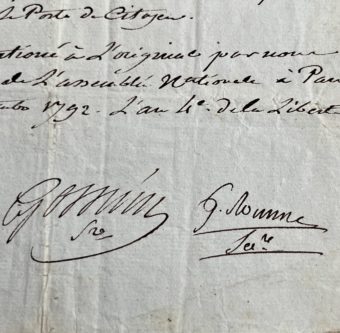 le Poste de Citoyen.
à L'original par nous
de L'assemblée Nationale à Par
bre 1792. L'an 4e. de la Libert
Gossuin G. Romme
Sre Secre